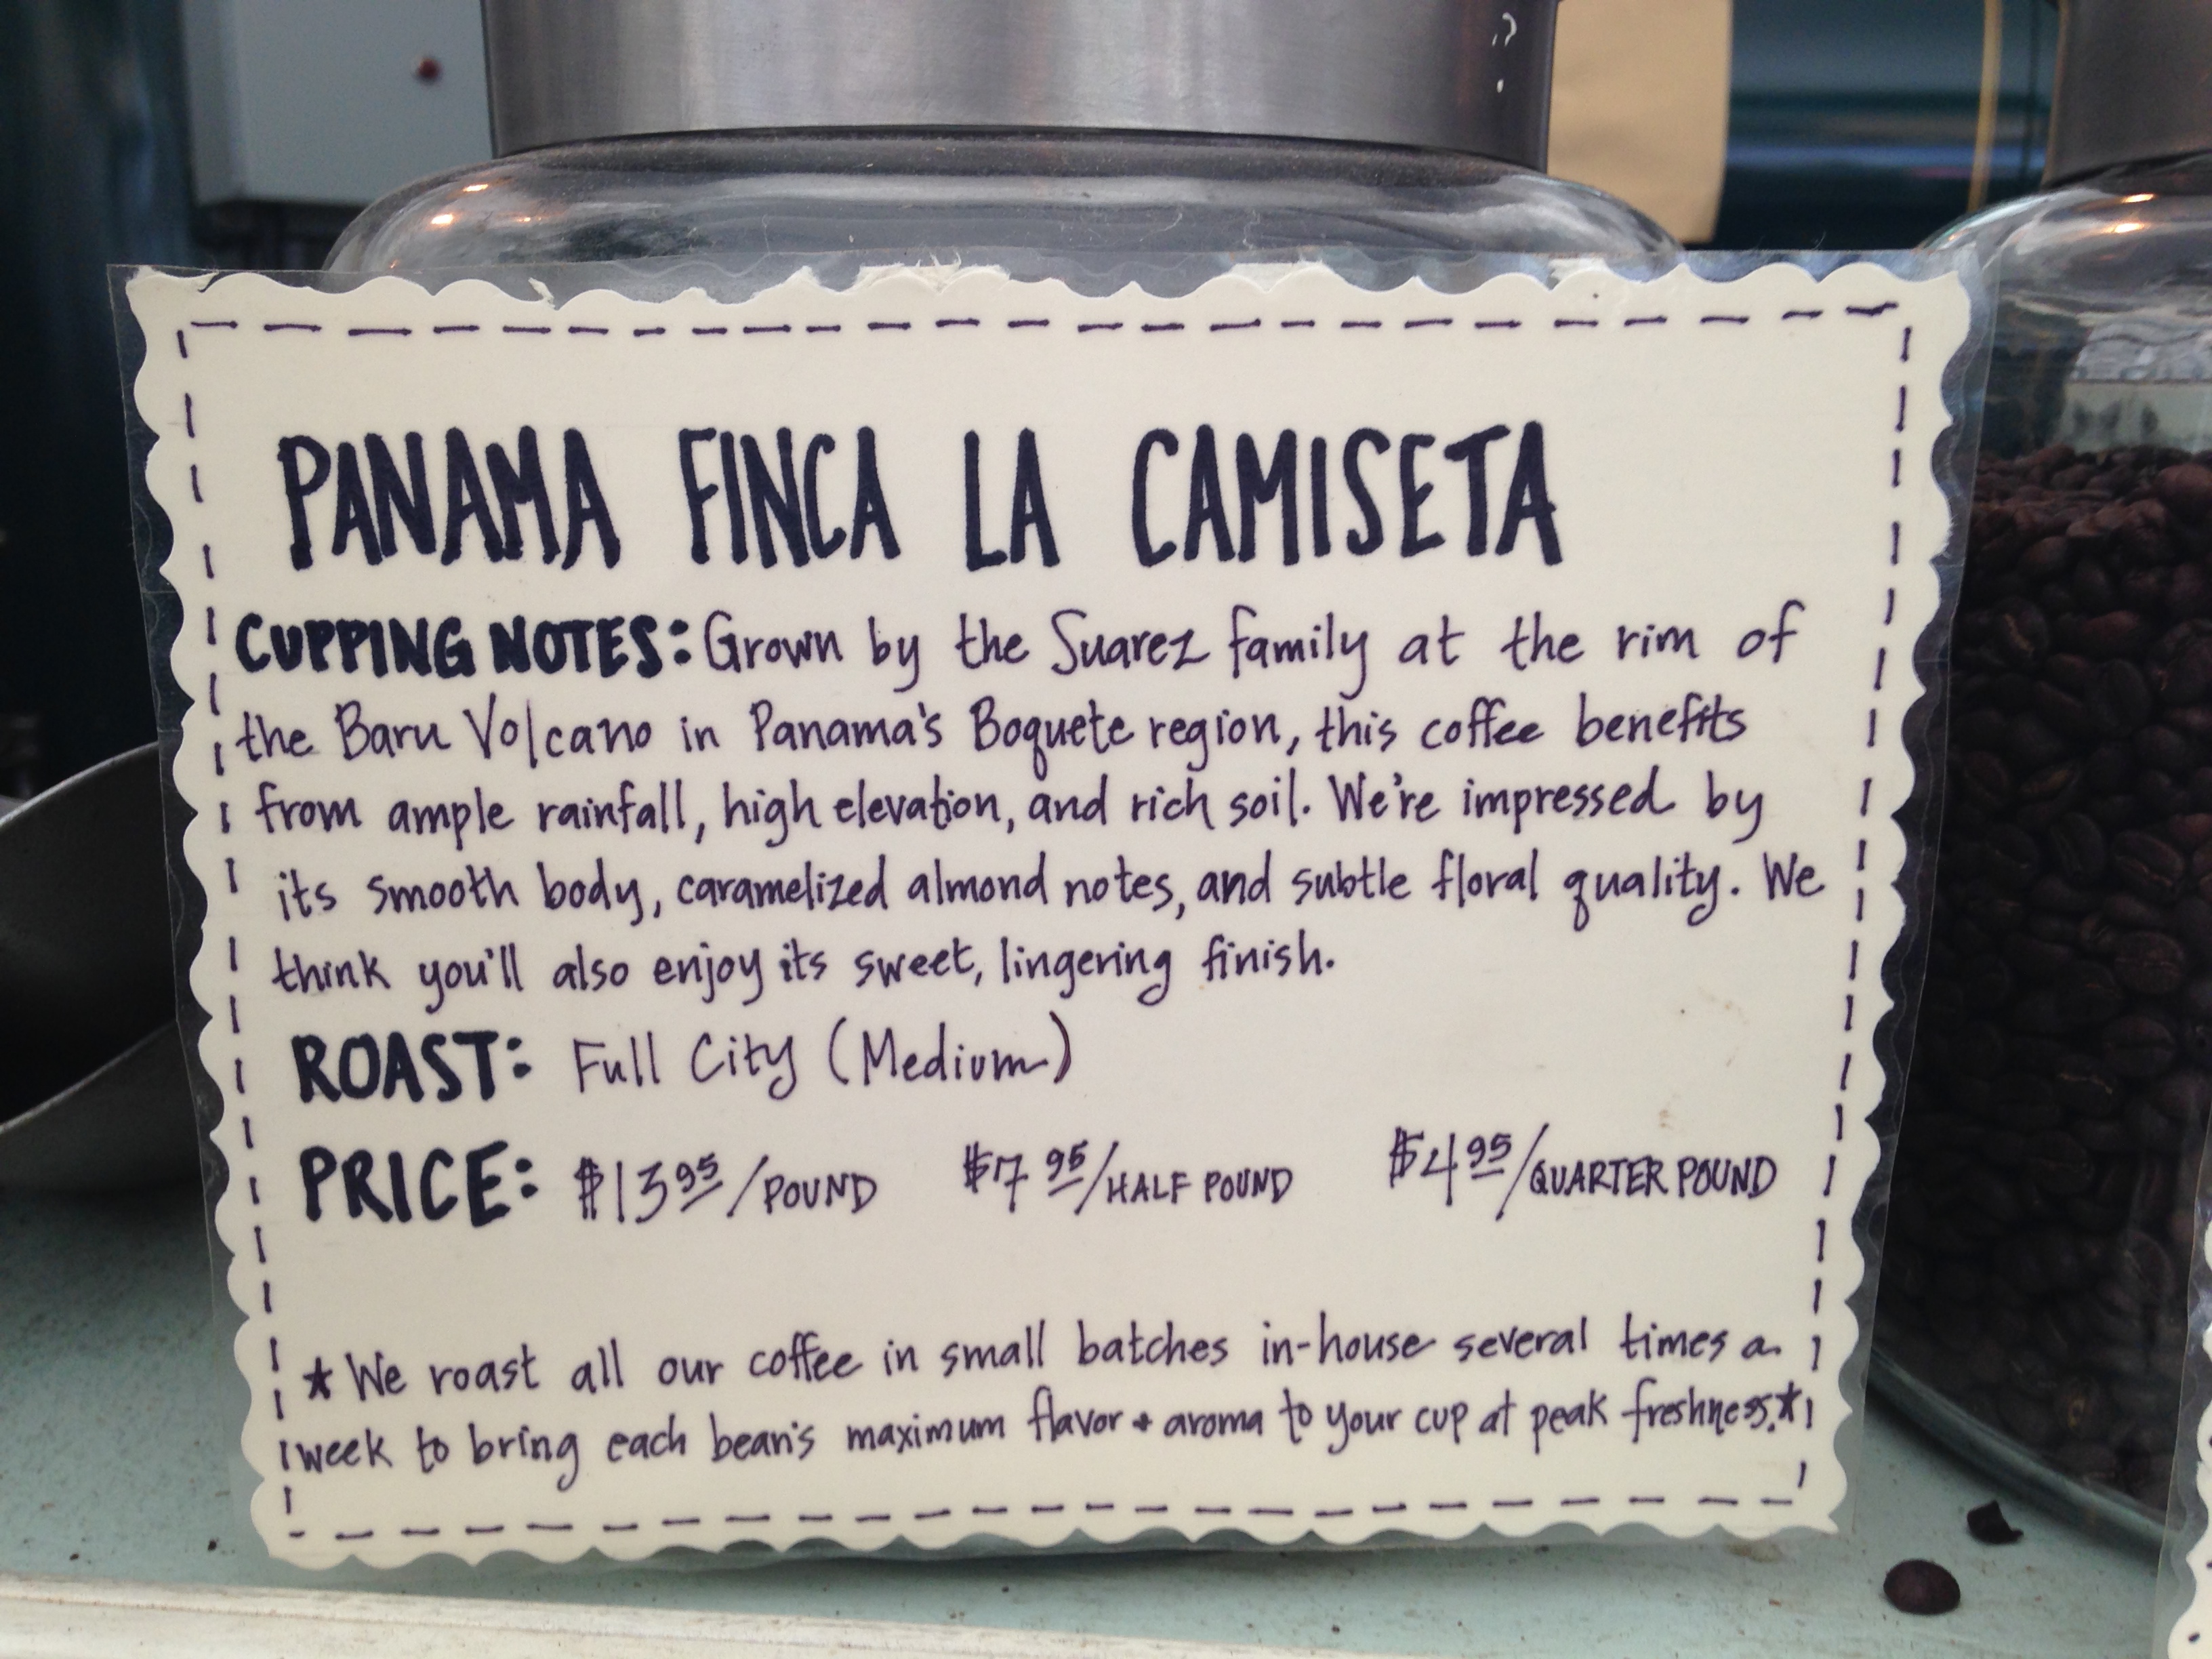 PANAMA FINCA LA CAMISETA
CUPPING NOTES: Grown by the Suarez family at the rim of
the Baru Volcano in Panama's Boquete region, this coffee benefits
from ample rainfall, high elevation, and rich soil. We're impressed by
its smooth body, caramelized almond notes, and subtle floral quality. We
think you'll also enjoy its sweet, lingering finish.
ROAST: Full City (Medium)
PRICE: $13 95/POUND $7 95/HALF POUND $4 95/QUARTER POUND
* We roast all our coffee in small batches in-house several times a
week to bring each bean's maximum flavor + aroma to your cup at peak freshness.*